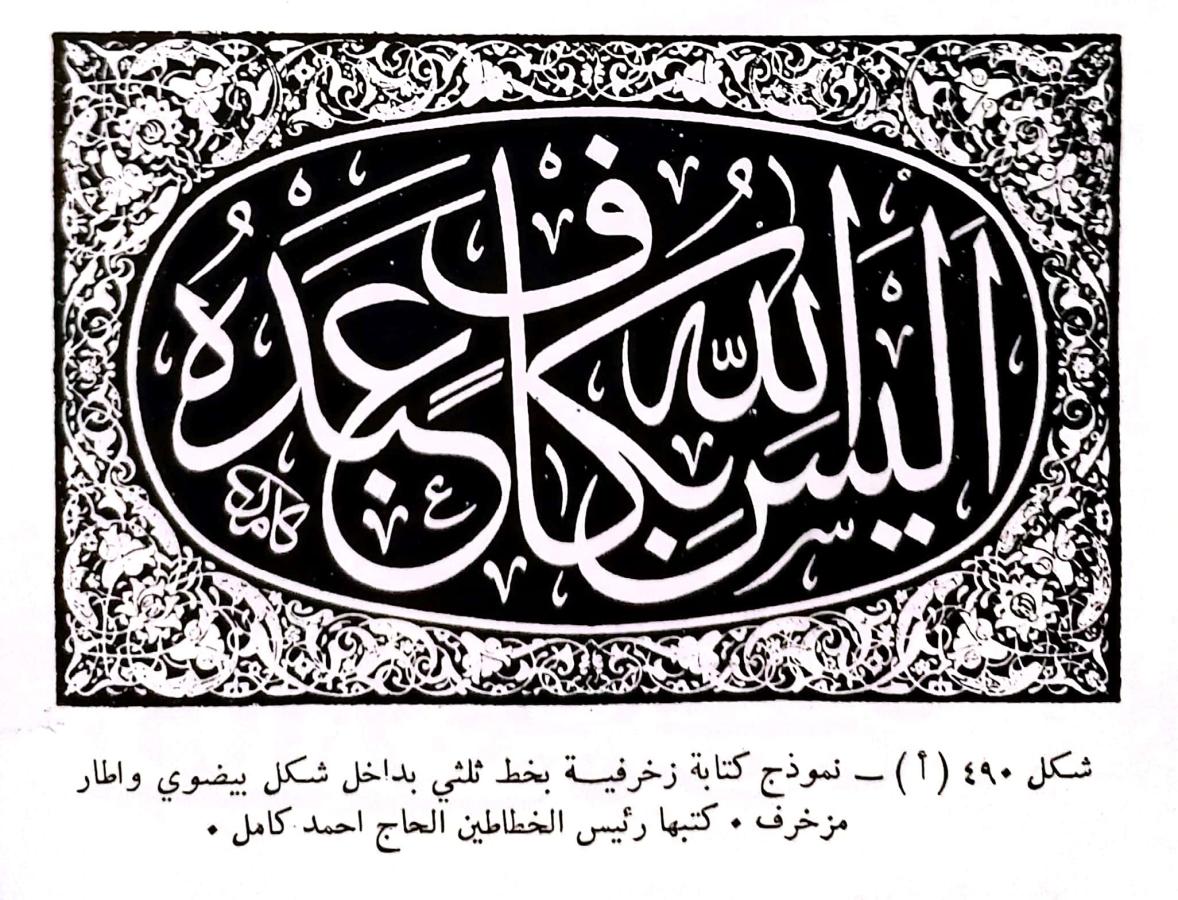 اليس الله بكاف عبده
كامل
شكل ٤٩٠ (أ) ـ نموذج كتابة زخرفيـة بخط ثلثي بداخل شكل بيضوي واطار
مزخرف ٠ كتبها رئيس الخطاطين الحاج احمد كامل ٠